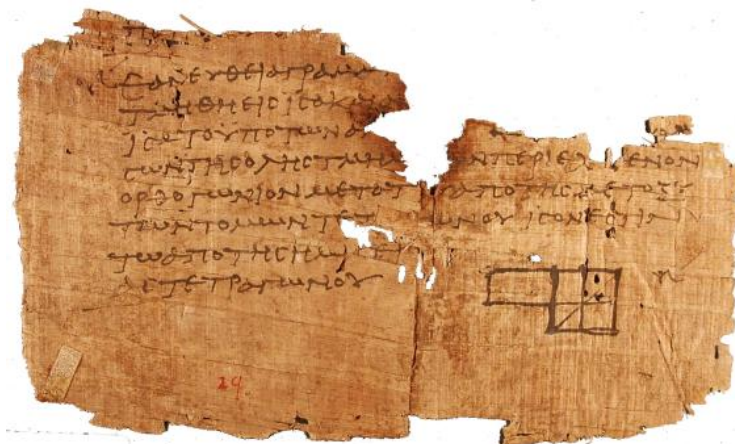 ΕΑΝ ΕΥΘΕΙΑ ΓΡΑΜΜ
ΤΜΗΘΗ ΕΙϹ ΙϹΑ Κ
ΙϹΑ ΤΟ ΥΠΟ ΤΩΝ Α
ϹΩΝ ΤΗϹ ΟΛΗϹ ΤΜΗ ΩΝ ΠΕΡΙΕΧ ΜΕΝΟΝ
ΟΡΘΟΓΩΝΙΟΝ ΜΕΤΑ ΤΟΥ ΑΠΟ ΤΗϹ ΜΕΤΟΞΥ
ΤΩΝ ΤΟΜΩΝ ΤΕΤ ΩΝΟΥ ΙϹΟΝ ΕϹΤΙΝ
ΤΩ ΑΠΟ ΤΗϹ ΗΜΙ
ΑϹ ΤΕΤΡΑΓΩΝΟΥ
29